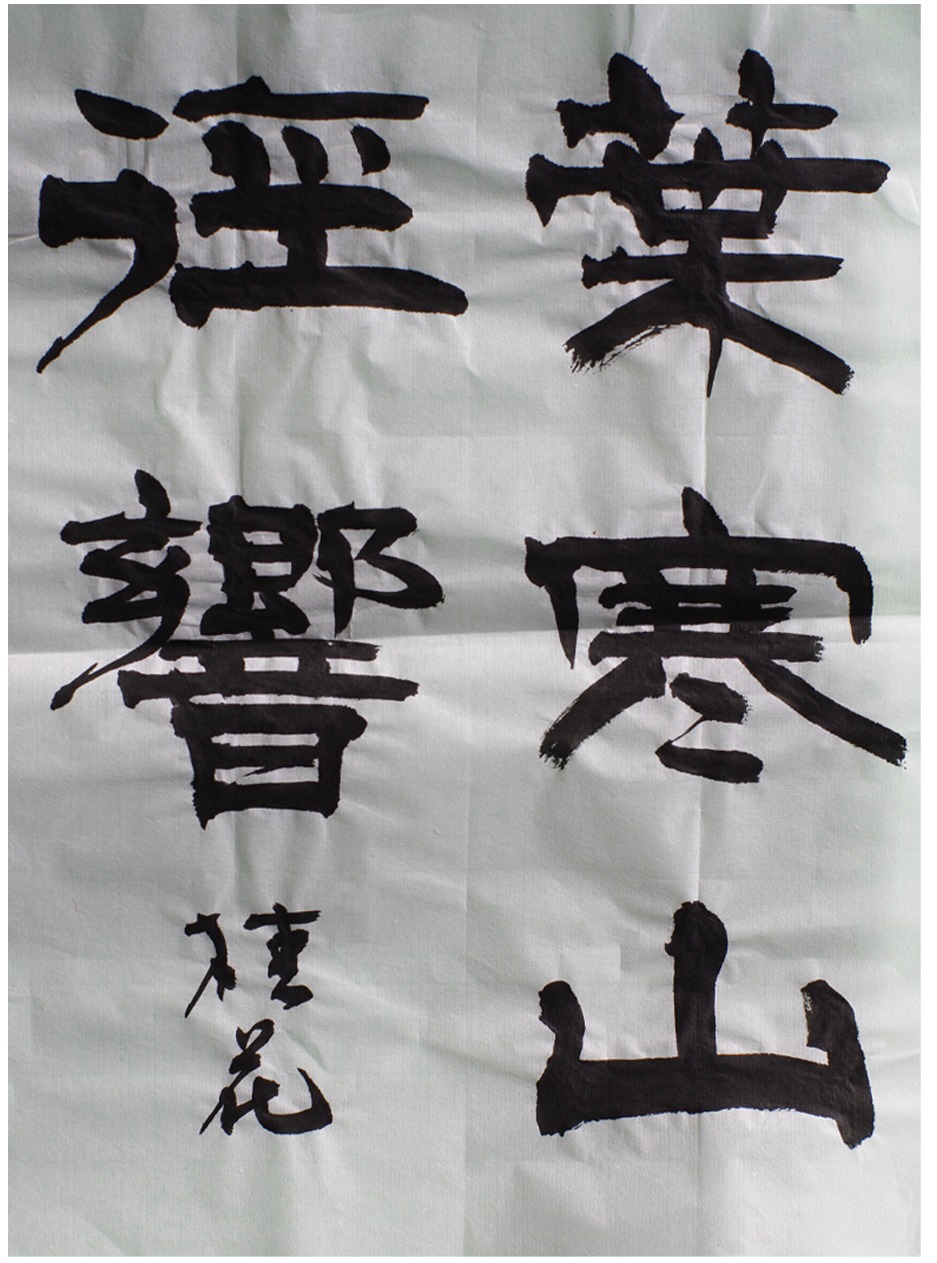 葉寒山
徑響
桂花